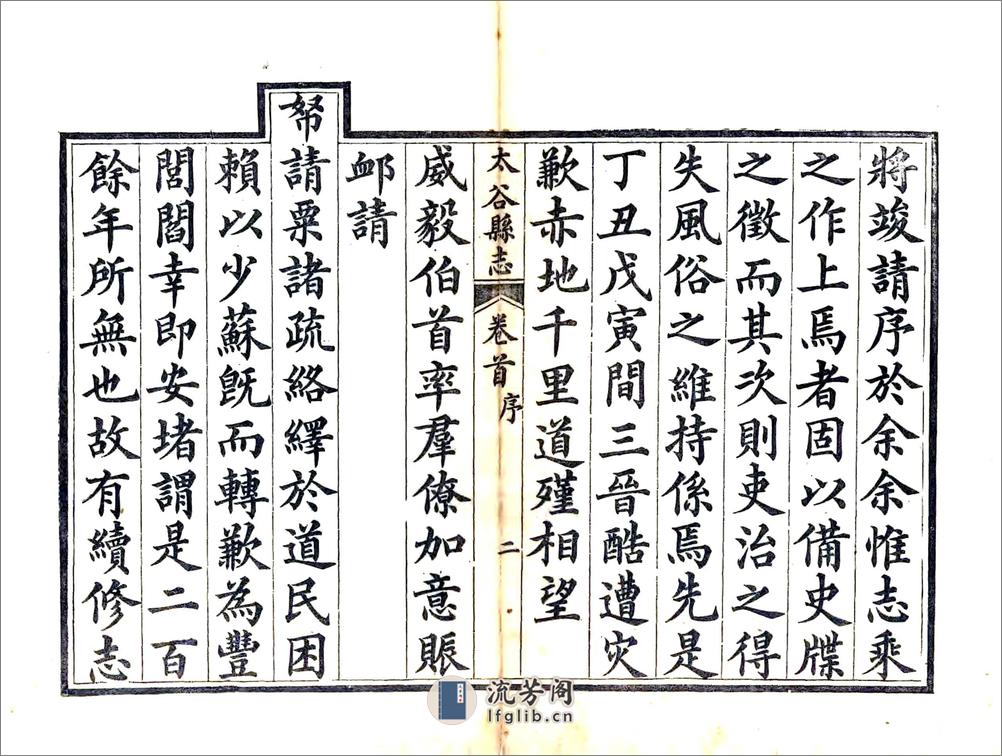 將竣請序於余余惟志乘
之作上焉者固以備史牒
之徵而其次則吏治之得
失風俗之維持係焉先是
丁丑戊寅間三晉酷遭灾
歉赤地千里道殣相望
太谷縣志 卷首 序 二
威毅伯首率羣僚加意賑
䘏請
帑請粟諸疏絡繹於道民困
賴以少蘇旣而轉歉為豐
閭閻幸即安堵謂是二百
餘年所無也故有續修志
流芳阁
lfglib.cn